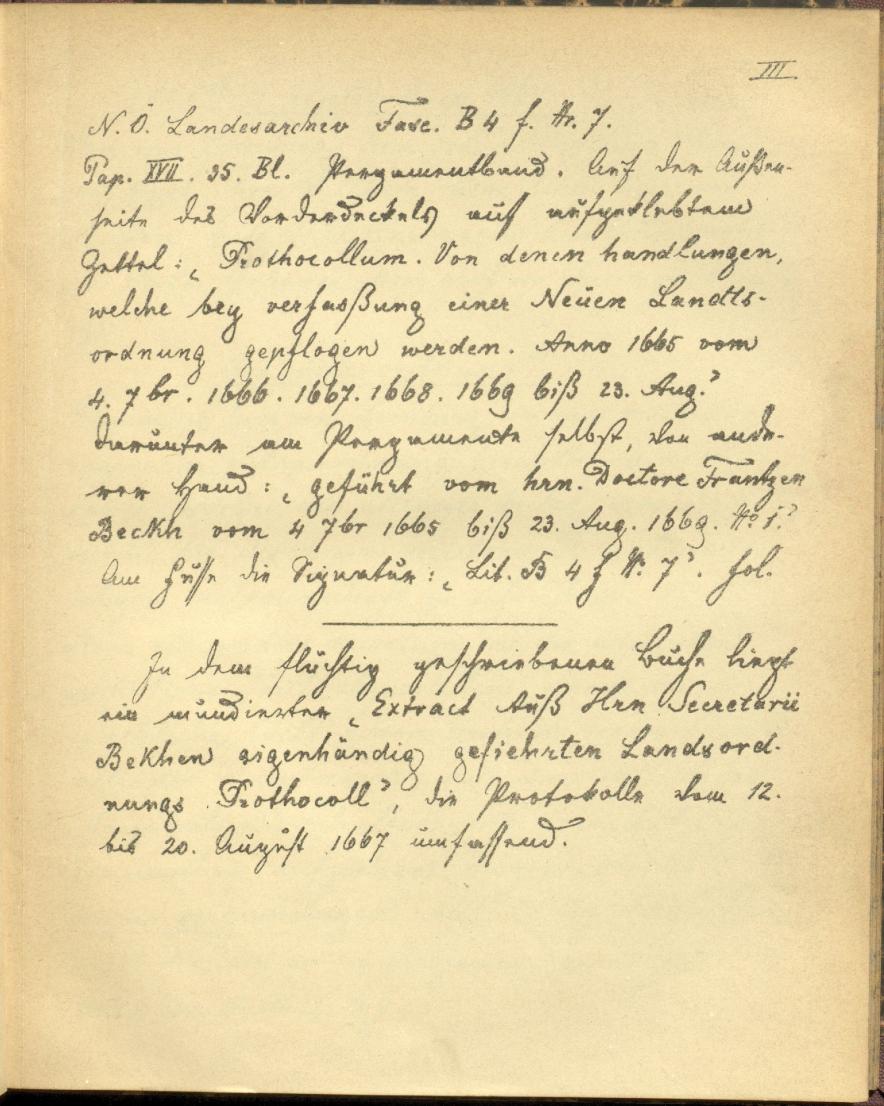 III
N. Ö. Landesarchiv Fasc. B 4 f. Nr. 7.
Pap. XVII. 35. Bl. Pergamentband. Auf der Außen-
seite des Vorderdeckels auf aufgeklebtem
Zettel: „Prothocollum. Von denen handlungen,
welche bey verfasßung einer Neüen Landts-
ordnung gepflogen werden. Anno 1665 vom
4. 7br. 1666. 1667. 1668. 1669 biß 23. Aug.”
darunter am Pergamente selbst, von ande-
rer Hand: „geführt vom hrn. Doctore Frantzen
Beckh vom 4 7br 1665 biß 23. Aug. 1669. No 1.”
Am Fusse die Signatur: „Lit. B 4 f No 7”. fol.
In dem flüchtig geschriebenen Buche liegt
ein mundierter „Extract Auß Hrn Secretarii
Bekhen aigenhändig gefiehrten Landsord-
nungs Prothocoll”, die Protokolle vom 12.
bis 20. August 1667 umfassend.